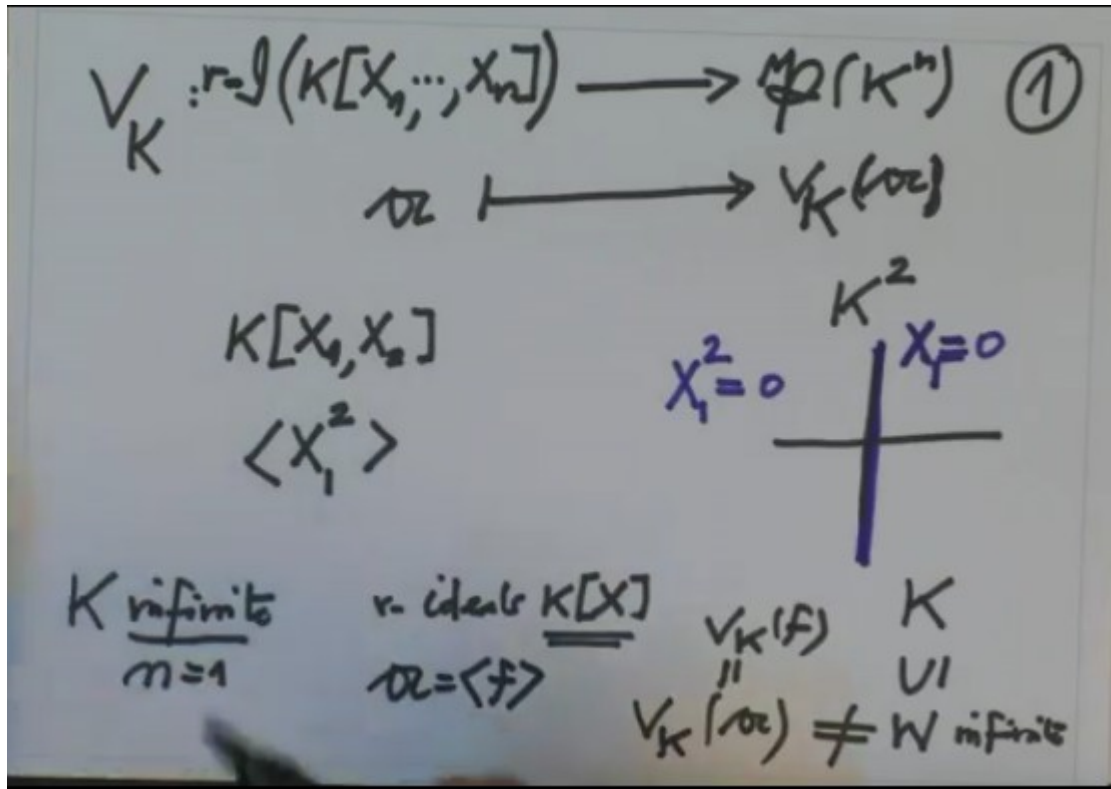 V_K : r-I(K[X_1,...,X_n]) ⟶ P(K^n) ①
𝔞 ⟼ V_K(𝔞)
K[X_1, X_2]
K^2
X_1^2 = 0
X_1 = 0
<X_1^2>
K infinite
n=1
r-ideals K[X]
𝔞 = <f>
V_K(f)
K
||
∪|
V_K(𝔞) ≠ W infinite